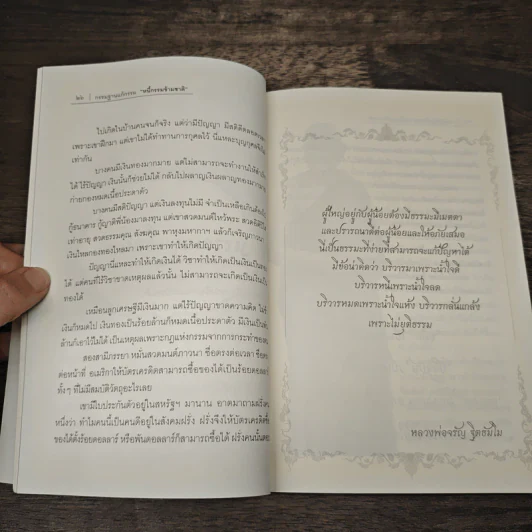 ๒๖ | กรรมฐานแก้กรรม "หนี้กรรมข้ามชาติ"
ไปเกิดในบ้านคนจนก็จริง แต่ว่ามีปัญญา มีสติดีตลอด
เพราะเขาฝึกมา แต่เขาไม่ได้ทำทานการกุศลไว้ นี่แหละบุญกุศล
เท่ากัน
บางคนมีเงินทองมากมาย แต่ไม่สามารถจะทำงานให้สำเร็จ
ได้ ไร้ปัญญา เงินนั้นก็ช่วยไม่ได้ กลับไปผลาญเงินผลาญทอง
ก่ายกองหมดเนื้อประดาตัว
บางคนมีสติปัญญา แต่เงินลงทุนไม่มี จำเป็นเหลือเกินต้อง
กู้ธนาคาร กู้ญาติพี่น้องมาลงทุน แต่เขาสวดมนต์ไหว้พระ สวด
เท่าอายุ สวดธรรมคุณ สังฆคุณ พาหุงมหากาฯ แล้วก็เจริญภาวนา
เงินไหลกองทองไหลมา เพราะเขาทำให้เกิดปัญญา
ปัญญานี่แหละทำให้เกิดเงินได้ วิชาทำให้เกิดเป็นเงิน
ได้ แต่คนที่ไร้วิชาขาดเหตุผลแล้วนั้น ไม่สามารถจะเกิดเป็นเงิน
ทองได้
เหมือนลูกเศรษฐีมีเงินมาก แต่ไร้ปัญญาขาดความคิด
เงินก็หมดไป เงินทองเป็นร้อยล้านก็หมดเนื้อประดาตัว มีเงินเป็น
ล้านก็เอาไว้ไม่ได้ เป็นเหตุผลเพราะกฎแห่งกรรมจากการกระทำของ
สองสามีภรรยา หมั่นสวดมนต์ภาวนา ซื่อตรงต่อเวลา ซื่อ
ต่อหน้าที่ อเมริกาให้บัตรเครดิตสามารถซื้อของได้เป็นร้อยดอลลาร์
ทั้งๆ ที่ไม่มีสมบัติวัตถุอะไรเลย
เขามีใบประกันตัวอยู่ในสหรัฐฯ มานาน อาตมาถามฝรั่ง
หนึ่งว่า ทำไมคนนี้เป็นคนดีอยู่ในสังคมฝรั่ง ฝรั่งจึงให้บัตรเครดิต
ของได้ตั้งร้อยดอลลาร์ หรือพันดอลลาร์ก็สามารถซื้อได้ ฝรั่งคนนั้น
ผู้ใหญ่อยู่กับผู้น้อยต้องมีธรรมะมีเมตตา
และปรารถนาดีต่อผู้น้อยและให้อภัยเสมอ
นี่เป็นธรรมะที่ง่ายที่สามารถจะแก้ปัญหาได้
มีข้อน่าคิดว่า บริวารมาเพราะน้ำใจดี
บริวารหนีเพราะน้ำใจลด
บริวารหมดเพราะน้ำใจแห้ง บริวารกลั่นแกล้ง
เพราะไม่ยุติธรรม
หลวงพ่อจรัญ ฐิตธัมโม